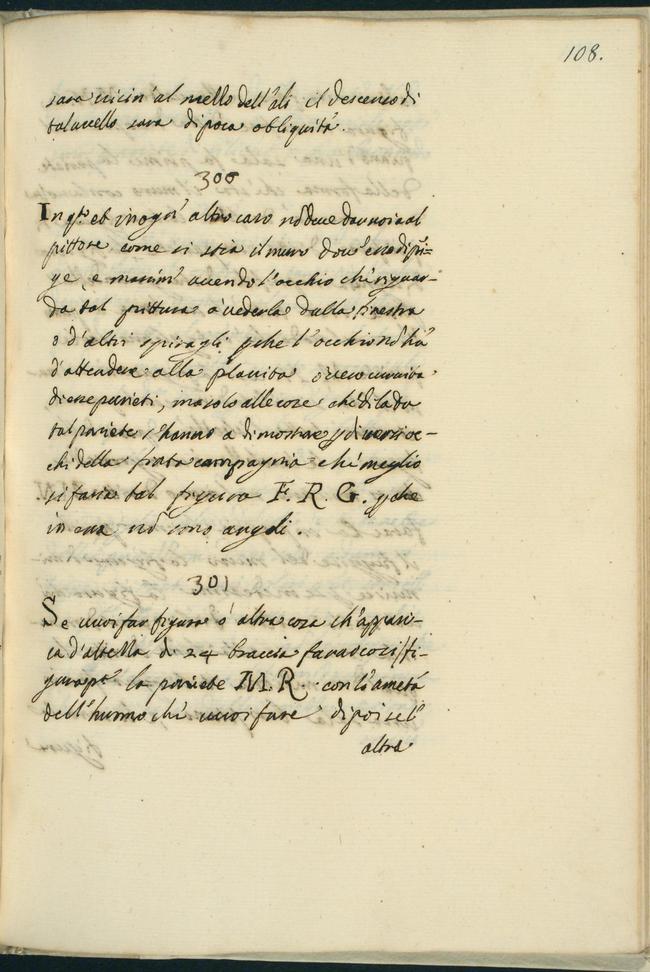 108.
sara vicin' al mezzo dell'ali il descenso di
tal ucello sara di poca obliquità.
300
In q.to et in ogn' altro caso nō deve dar noia al
pittore come si stia il muro dov' esso dipī=
ge, e massim' avendo l'occhio che riguar-
da tal pittura à vederla dalla finestra
o d'altri spiragli pche l'occhio nō hà
d'attendere alla planitia o vero curvita
di esse parieti, ma solo alle cose che di la da
tal pariete s'hanno a dimostrare p diversi oc-
chi della fintta campagnia che meglio
si faria tal figura F. R. G. pche
in essa nō sono angoli.
301
Se vuoi far figura ò altra cosa ch'appari-
sca d'altezza di 24 braccia farai cosi, fi-
gura p.a la pariete M. R. con la metà
dell'huomo che vuoi fare di poi se l'
altra